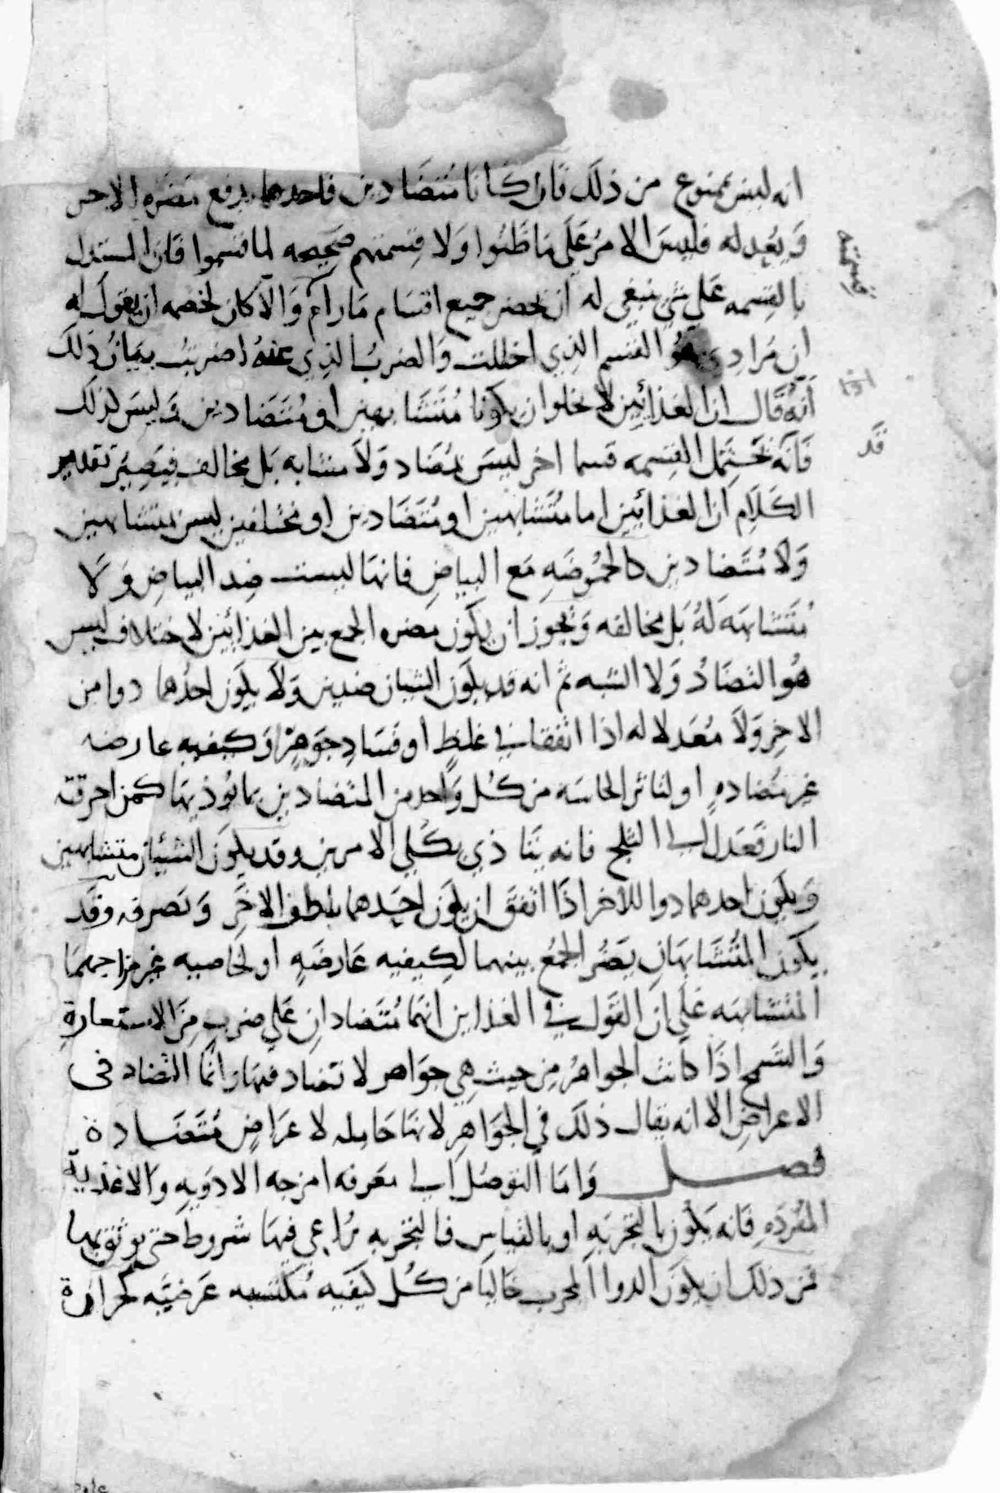 انه ليس بممنوع من ذلك فان كانا متضادين فاحدهما يدفع مضره الاخر
ويعدله فليس الامر على ما ظنوا ولا قسمتهم صحيحه لما قسموا فان المستدل
بالقسمه على شي ينبغي له ان يحصر جميع اقسام مارام والا كان لخصمه ان يقول له
ان مرادي هو القسم الذي اخللت والضرب الذي عنه اضربت بيان ذلك
انه قال ان الغذائين لا يخلوا ان يكونا متشابهين او متضادين وليس كذلك
فانه تحتمل القسمه قسما اخر ليس بمضاد ولا مشابه بل مخالف فيصير تقدير
الكلام ان الغذائين اما متشابهين او متضادين او مختلفين ليس متشابهين
ولا متضادين كالحموضه مع البياض فانها ليست ضد البياض ولا
متشابهه له بل مخالفه ويجوز ان يكون مضره الجمع بين الغذائين لاختلاف ليس
هو التضاد ولا الشبه ثم انه قد يكون الشيان ضدين ولا يكون احدهما دوا من
الاخر ولا معدلا له اذا اتفقا في غلظ او فساد جوهر او كيفيه عارضه
غير مضاده او لتاثر الحاسه من كل واحد من المتضادين بما يوذيها كمن احرقته
النار فعدل الى الثلج فانه يتاذي بكلي الامرين وقد يكون الشيان متشابهين
ويكون احدهما دوا للاخر اذا اتفق ان يكون احدهما يلطف الاخر ويصرفه وقد
يكون المتشابهان يضر الجمع بينهما لكيفيه عارضه او لخاصيه غير مزاجهما
المتشابهه على ان القول في الغذاين انهما متضادان على ضرب من الاستعارة
والتسمح اذا كانت الجواهر من حيث هي جواهر لا تضاد فيها وانما التضاد في
الاعراض الا انه يقال ذلك في الجواهر لانها حامله لاعراض متضادة
فصل واما التوصل الى معرفه امزجه الادويه والاغذية
المفرده فانه يكون بالتجربه او بالقياس فالتجربه يراعي فيها شروط حتى يوثق بها
فمن ذلك ان يكون الدوا المجرب خاليا من كل كيفيه مكتسبه عرضيه كحرارة
قد